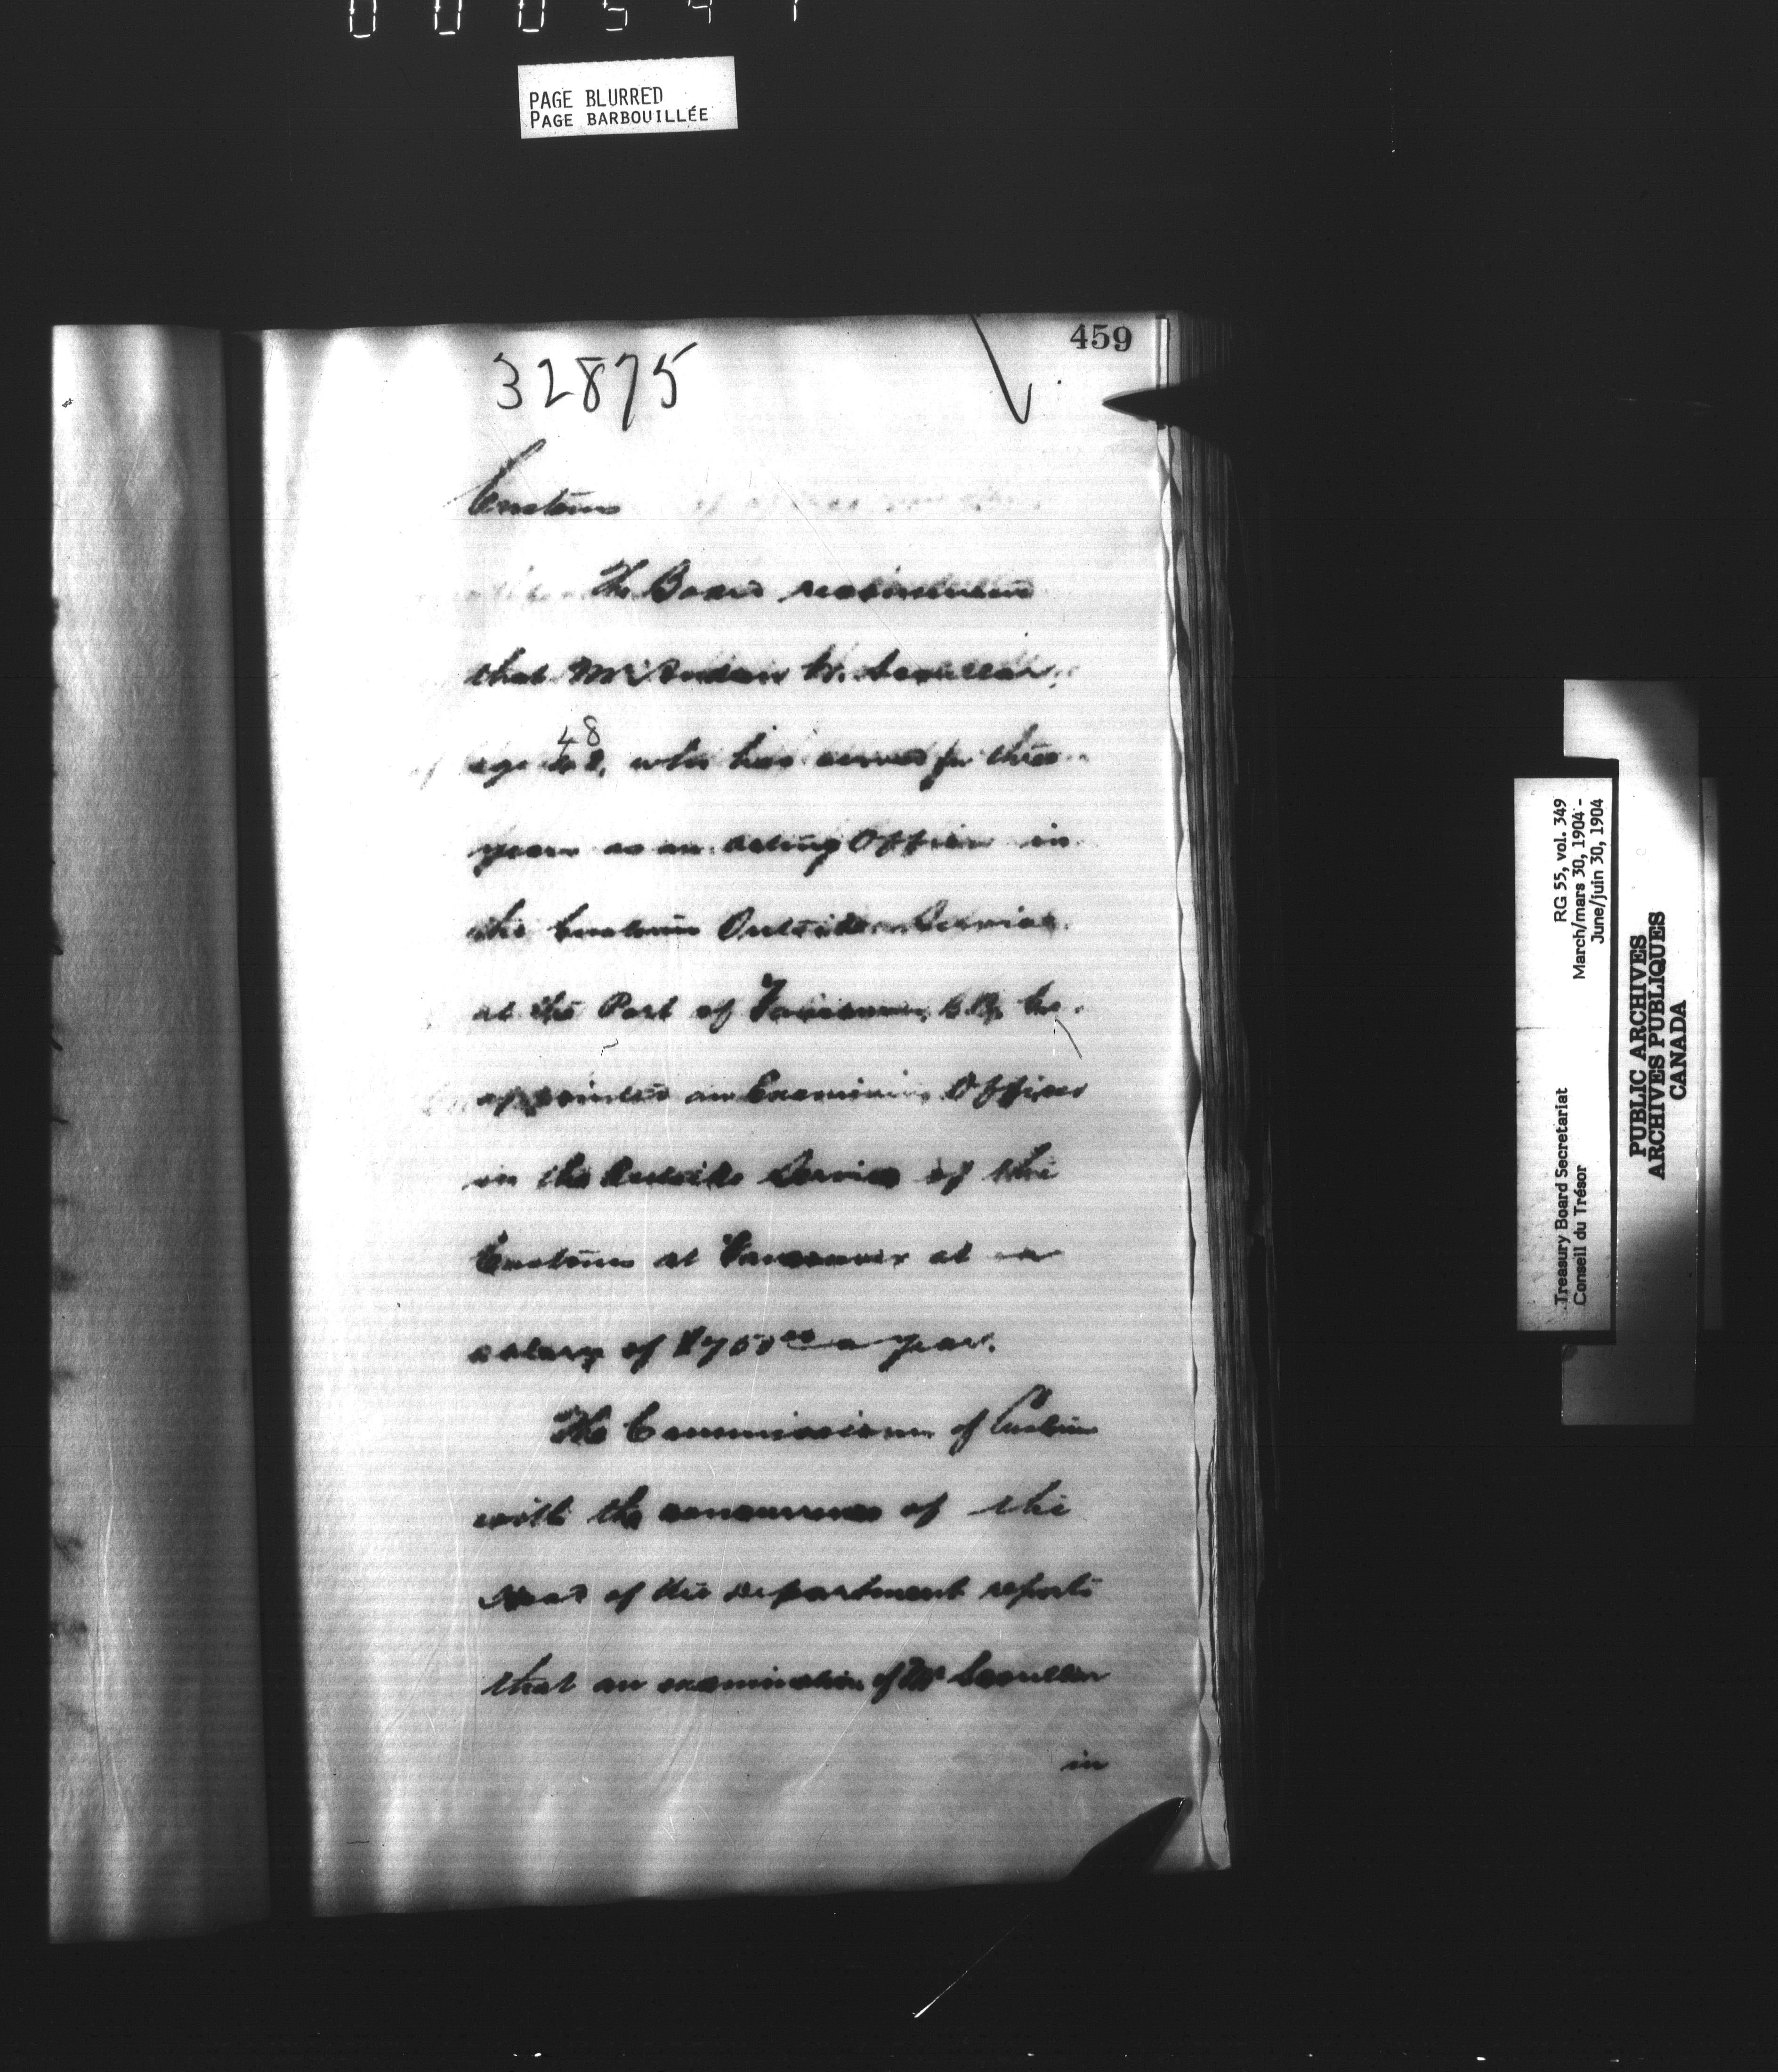 PAGE BLURRED
PAGE BARBOUILLÉE
459
32875
Customs
The Board recommend
that Mr W.
48
age 48, who has served for three
years as an acting Officer in
the Customs Outside Service
at the Port of Vancouver, B.C, be
appointed an Examining Officer
in the Outside Service of the
Customs at Vancouver at a
salary of $750 00 a year.
The Commissioner of Customs
with the concurrence of the
Head of the Department reports
that an examination of Mr
in
RG 55, vol. 349
March/mars 30, 1904 -
June/juin 30, 1904
Treasury Board Secretariat
Conseil du Trésor
PUBLIC ARCHIVES
ARCHIVES PUBLIQUES
CANADA